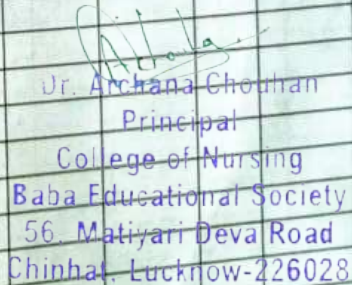 Dr. Archana Chouhan
Principal
College of Nursing
Baba Educational Society
56, Matiyari Deva Road
Chinhat, Lucknow-226028